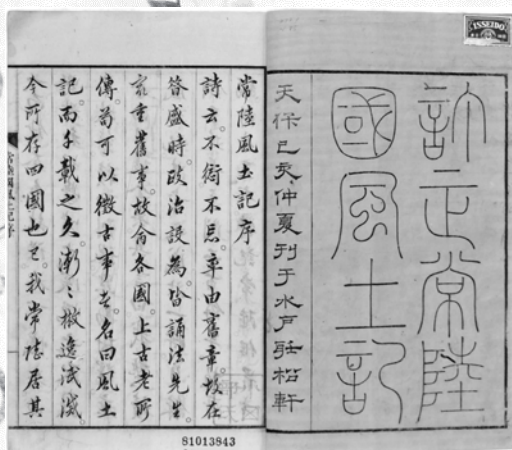 ISSEIDO
訂正常陸
國風土記
天保己亥仲夏刊于水戶聽松軒
常陸風土記序
詩云。不愆不忘。率由舊章。故在
昔盛時。政治設為。皆誦法先王。
重舊事。故命各國。上古老所
傳。苟可以徵古事者。名曰風土
記。而千載之久。漸〻散逸泯滅。
今所存四國也已。我常陸居其
81013843